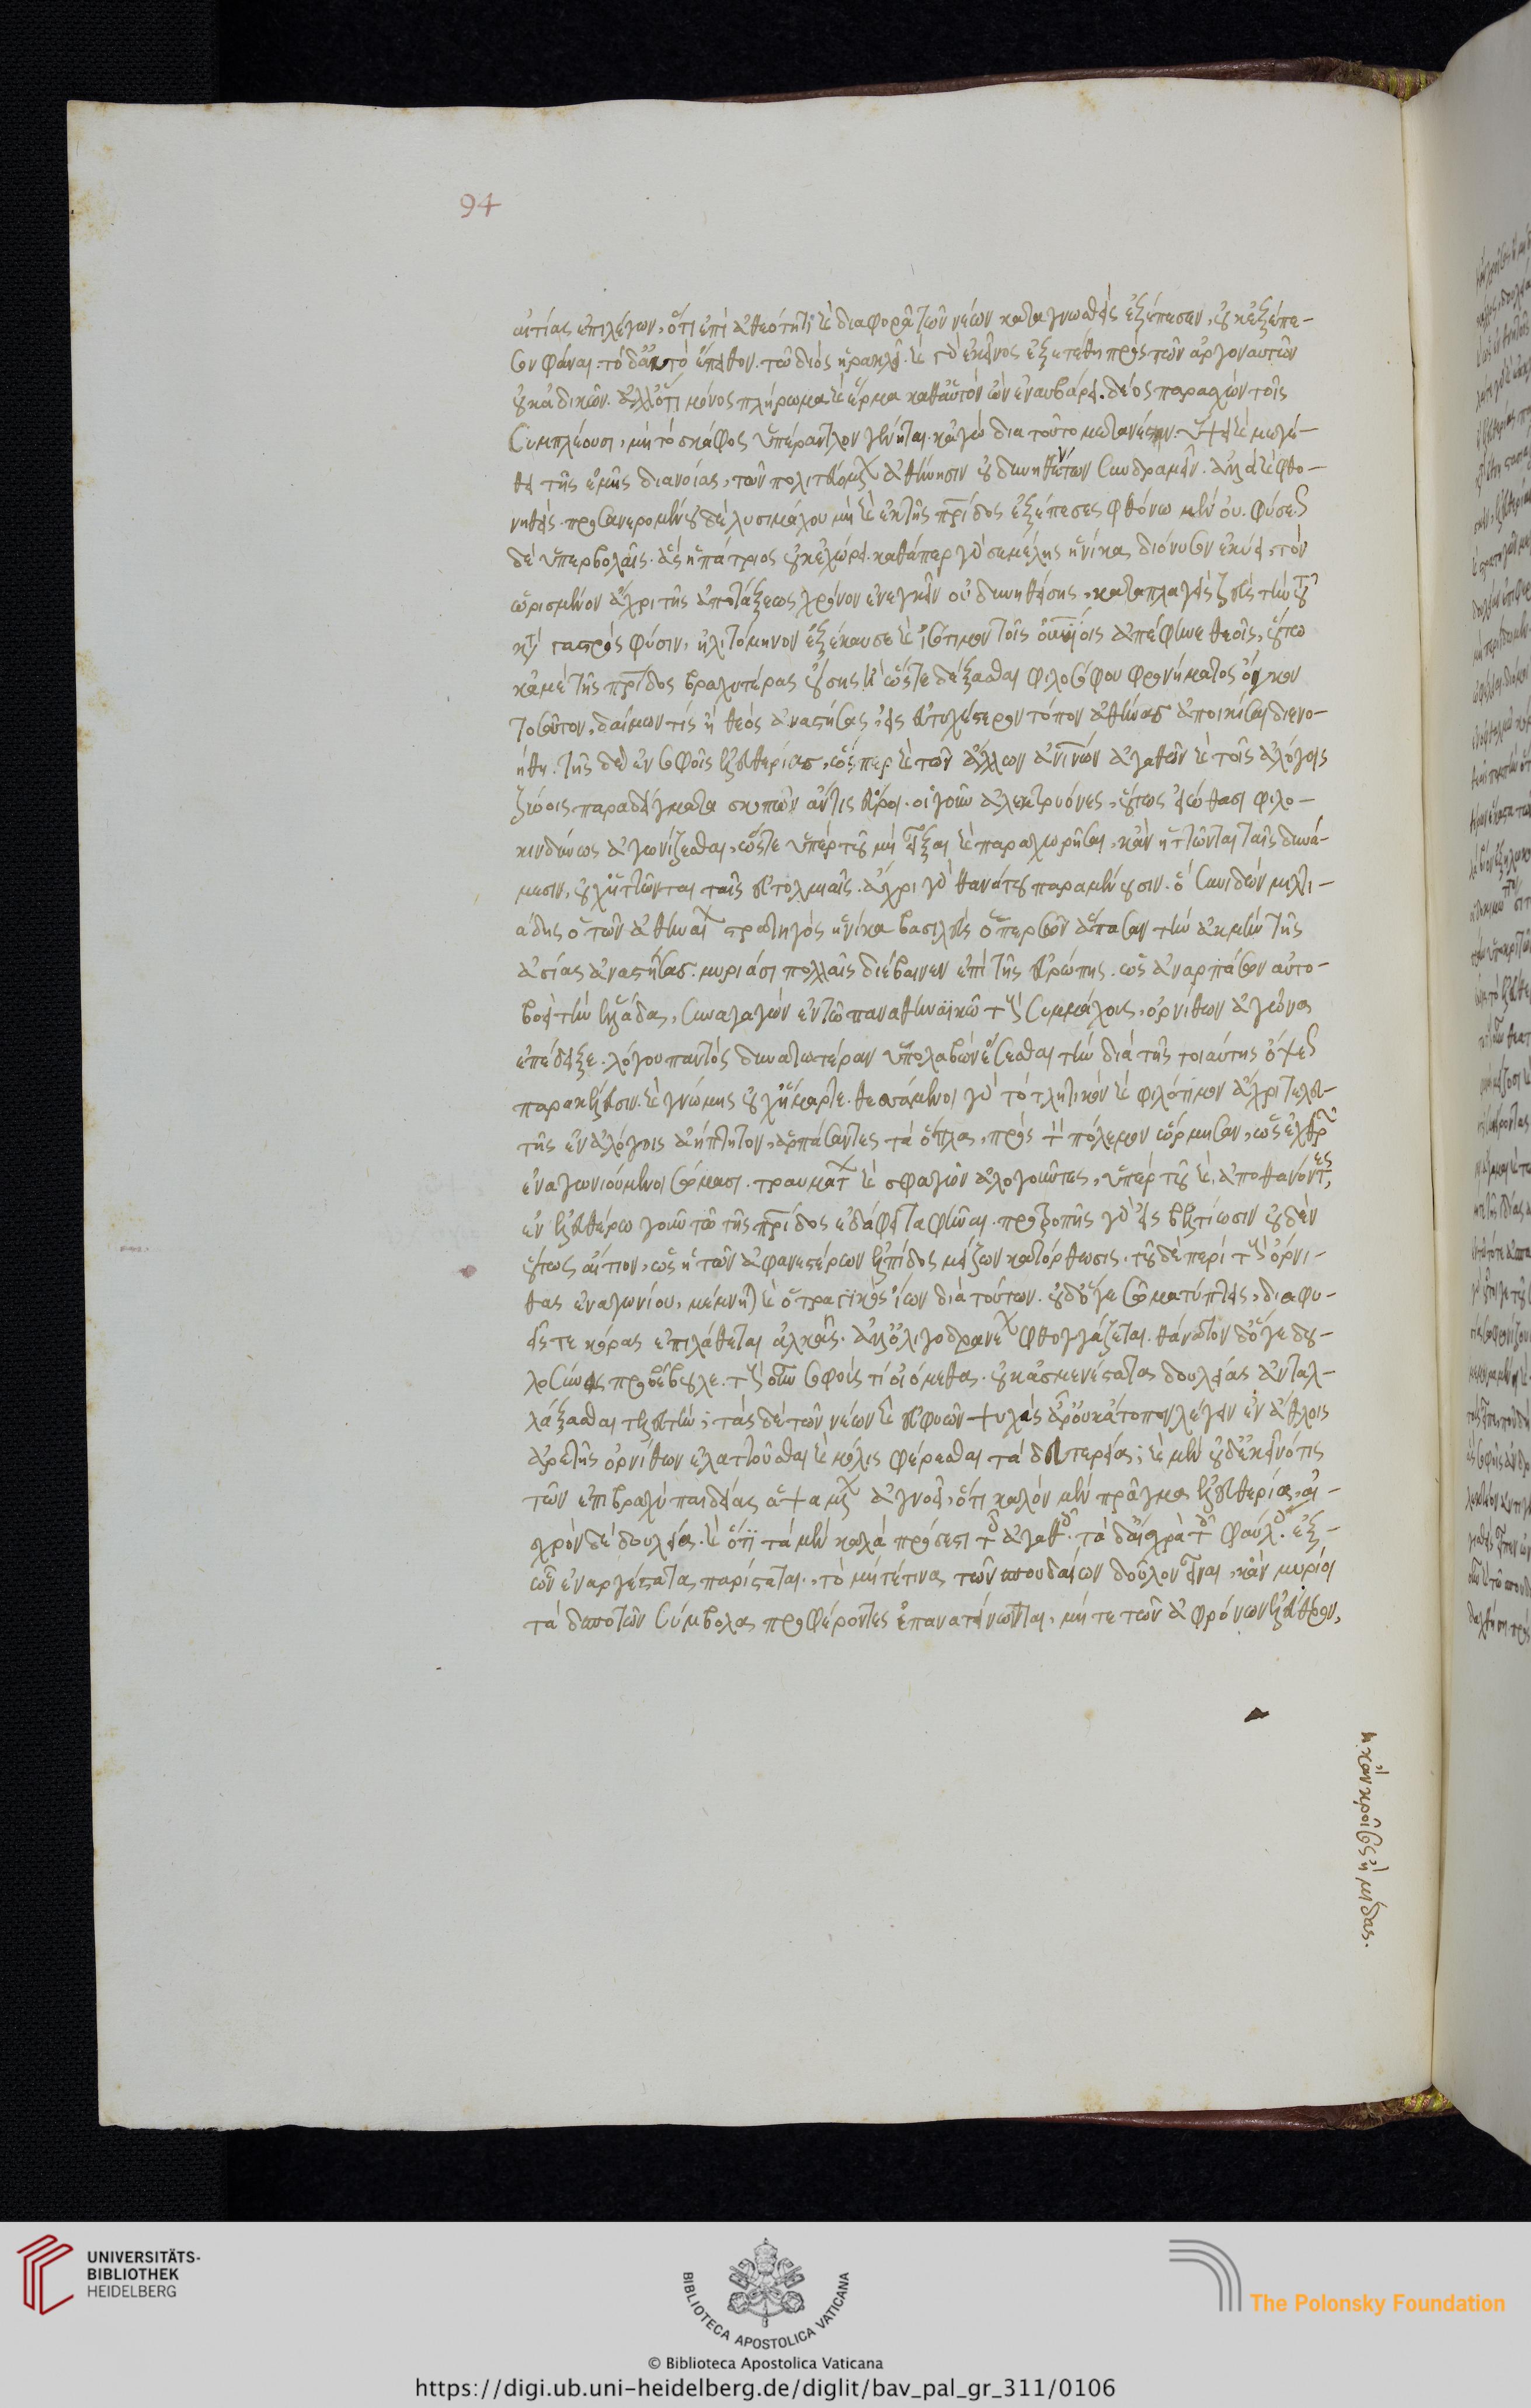 αἰτίας ἐπιλέγων, ὅτι ἐπὶ ἀθεότητι καὶ διαφορᾷ τῶν νέων καταγνωσθεὶς ἐξέπεσεν, οὐκ ἐξέπε-
σον φάναι· τὸ δ' αὐτὸ ἔπαθον τῷ διὸς ἡρακλεῖ. καὶ γὰρ ἐκεῖνος ἐξετέθη πρὸς τῶν ἀργοναυτῶν
οὐκ ἀδικῶν. ἀλλ' ὅτι μόνος πλήρωμα καὶ ἕρμα καθ' αὑτὸν ὢν ἐναυβάρει. δέος παρασχὼν τοῖς
συμπλέουσι, μὴ τὸ σκάφος ὑπέραντλον γένηται. κἀγὼ διὰ τοῦτο μετανέστην. ὕψει καὶ μεγέ-
θει τῆς ἐμῆς διανοίας, τῶν πολιτευομένων ἀθήνησιν οὐ δυνηθέντων συνδραμεῖν. ἀλλὰ καὶ φθο-
νηθείς. προσανερομένου δὲ λυσιμάχου μὴ καὶ ἐκ τῆς πατρίδος ἐξέπεσες φθόνῳ μὲν οὐ. φύσεως
δὲ ὑπερβολαῖς. ἃς ἡ πάτριος οὐκ ἐχώρει. καθάπερ γὰρ σεμέλης ἡνίκα διόνυσον ἐκύει, τὸν
ὡρισμένον ἄχρι τῆς ἀποτάξεως χρόνον ἐνεγκεῖν οὐ δυνηθείσης, καταπλαγεὶς ζεὺς τὴν οὐ
κατὰ τὰ πρὸς φύσιν, ἠλιτόμηνον ἐξέκαυσε καὶ ἰσότιμον τοῖς οὐρανίοις ἀπέφηνε θεοῖς, οὕτω
κἀμὲ τῆς πατρίδος βραχυτέρας οὔσης ἢ ὥστε δέξασθαι φιλοσόφου φρονήματος ὄγκον
τοσοῦτον, δαίμων τίς ἢ θεὸς ἀναστήσας, εἰς εὐτυχέστερον τόπον ἀθήνας ἀποικίσαι διενο-
ήθη. τῆς δὲ ἐν σοφοῖς ἐλευθερίας, ὥσπερ καὶ τῶν ἄλλων ἀνθρωπίνων ἀγαθῶν καὶ τοῖς ἀλόγοις
ζώοις παραδείγματα σκοπῶν ἄν τις εὕροι. οἱ γοῦν ἀλεκτρυόνες, οὕτως εἰώθασι φιλο-
κινδύνως ἀγωνίζεσθαι, ὥστε ὑπὲρ τοῦ μὴ εἶξαι καὶ παραχωρῆσαι, κἂν ἡττῶνται ταῖς δυνά-
μεσιν, οὐχ ἡττῶνται ταῖς εὐτολμίαις. ἄχρι γὰρ θανάτου παραμένουσιν. ὃ συνιδὼν μιλτι-
άδης ὁ τῶν ἀθηναίων στρατηγὸς ἡνίκα βασιλεὺς ὁ περσῶν ἅπασαν τὴν ἀκμὴν τῆς
ἀσίας ἀναστήσας. μυριάσι πολλαῖς διέβαινεν ἐπὶ τῆς εὐρώπης. ὡς ἀναρπάσων αὐτο-
βοεὶ τὴν ἑλλάδα, συναγαγὼν ἐν τῷ παναθηναϊκῷ τοὺς συμμάχους, ὀρνίθων ἀγῶνα
ἐπέδειξε. λόγου παντὸς δυνατωτέραν ὑπολαβὼν ἔσεσθαι τὴν διὰ τῆς τοιαύτης ὄψεως
παρακέλευσιν. καὶ γνώμης οὐχ ἥμαρτε. θεασάμενοι γὰρ τὸ τλητικὸν καὶ φιλότιμον ἄχρι τελευ-
τῆς ἐν ἀλόγοις ἀήττητον, ἁρπάσαντες τὰ ὅπλα, πρὸς τὸν πόλεμον ὥρμησαν, ὡς ἐχθρῶν
ἐναγωνιούμενοι σώμασι. τραυμάτων καὶ σφαγῶν ἀλογοῦντες, ὑπὲρ τοῦ καὶ ἀποθανόντες,
ἐν ἐλευθέρῳ γοῦν τῷ τῆς πατρίδος ἐδάφει ταφῆναι. προτροπῆς γὰρ εἰς βελτίωσιν οὐδὲν
οὕτως αἴτιον, ὡς ἡ τῶν ἀφανεστέρων ἐλπίδος μείζων κατόρθωσις. τοῦ δὲ περὶ τοὺς ὄρνι-
θας ἐναγωνίου, μέμνηται καὶ ὁ τραγικὸς ἴων διὰ τούτων. οὐδ' ὅγε σῶμα τύπτεις, διαφυ-
εῖς τε κόρας ἐπιλάθεται ἀλκῆς. ἀλλ' ὀλιγοδρανέων φθογγάζεται. θάνατον δ' ὅγε δου-
λοσύνας προβέβουλε. τοὺς οὖν σοφοὺς τί οἰόμεθα. οὐκ ἀσμενέστατα δουλείας ἀνταλ-
λάξασθαι τελευτήν; τὰς δὲ τῶν νέων καὶ εὐφυῶν ψυχὰς ἆρ' οὐκ ἄτοπον λέγειν ἐν ἄθλοις
ἀρετῆς ὀρνίθων ἐλαττοῦσθαι καὶ μόλις φέρεσθαι τὰ δευτερεῖα; καὶ μὴν οὐδ' ἐκεῖνό τις
τῶν ἐπὶ βραχὺ παιδείας ἁψαμένων ἀγνοεῖ, ὅτι καλὸν μὲν πρᾶγμα ἐλευθερία, αἰ-
σχρὸν δὲ δουλεία. καὶ ὅτι τὰ μὲν καλὰ πρόσεστι τοῖς ἀγαθοῖς. τὰ δ' αἰσχρὰ τοῖς φαύλοις. ἐξ-
ὧν ἐναργέστατα παρίσταται, τὸ μήτέ τινα τῶν σπουδαίων δοῦλον εἶναι, κἂν μυρίοι
τὰ δεσποτῶν σύμβολα προφέροντες ἐπανατείνωνται, μήτε τῶν ἀφρόνων ἐλεύθερον,
κἂν κροῖσος ἢ μίδας.
94
UNIVERSITÄTS-
BIBLIOTHEK
HEIDELBERG
BIBLIOTECA APOSTOLICA VATICANA
The Polonsky Foundation
© Biblioteca Apostolica Vaticana
https://digi.ub.uni-heidelberg.de/diglit/bav_pal_gr_311/0106